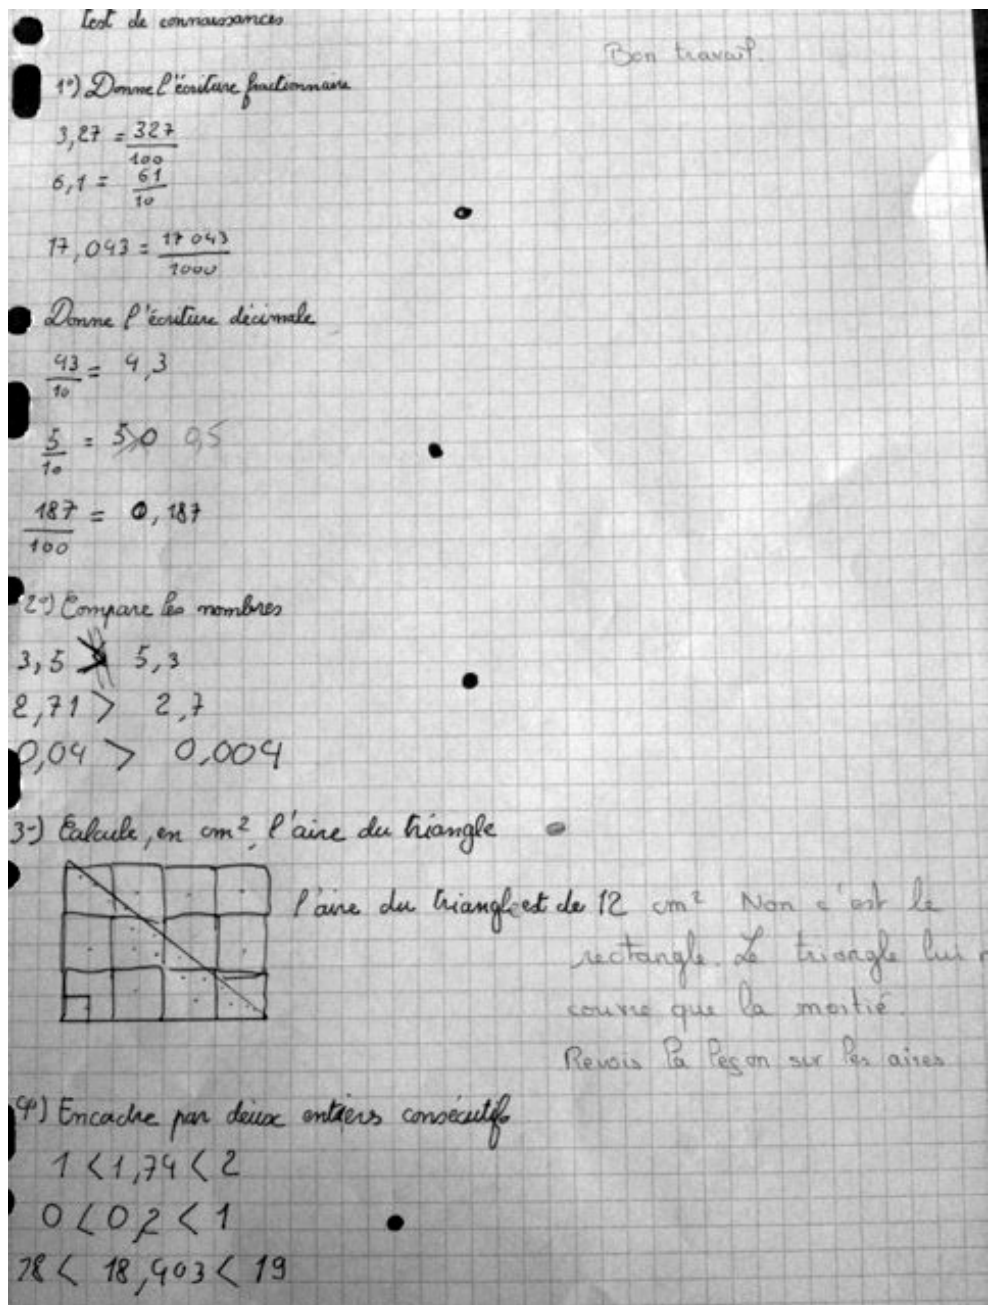 Test de connaissances
Bon travail.
1°) Donne l'écriture fractionnaire
3,27 = 327/100
6,1 = 61/10
17,043 = 17 043/1000
Donne l'écriture décimale
43/10 = 4,3
5/10 = 5,0 0,5
187/100 = 0,187
2°) Compare les nombres
3,5 > 5,3
2,71 > 2,7
0,04 > 0,004
3°) Calcule, en cm², l'aire du triangle
l'aire du triangle est de 12 cm² Non c'est le
rectangle. Le triangle lui n
couvre que la moitié.
Revois la leçon sur les aires
4°) Encadre par deux entiers consécutifs
1 < 1,74 < 2
0 < 0,2 < 1
18 < 18,403 < 19